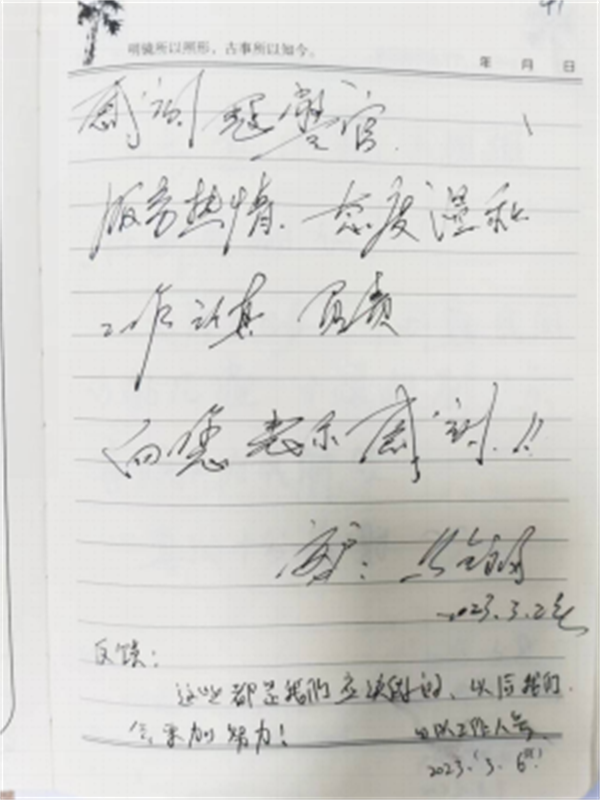 41
明镜所以照形，古事所以知今。
年 月 日
感谢 警官.
服务热情. 态度温和
工作认真 负责
向您表示感谢!!
2023.3.2
反馈：
这些都是我们应该做的、以后我们
会更加努力！ 工作人员
2023.3.6